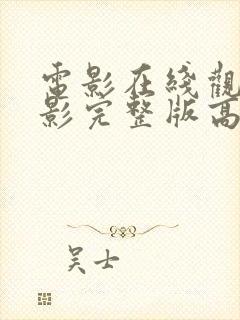 電影在綫觀
影完整版高
吴士